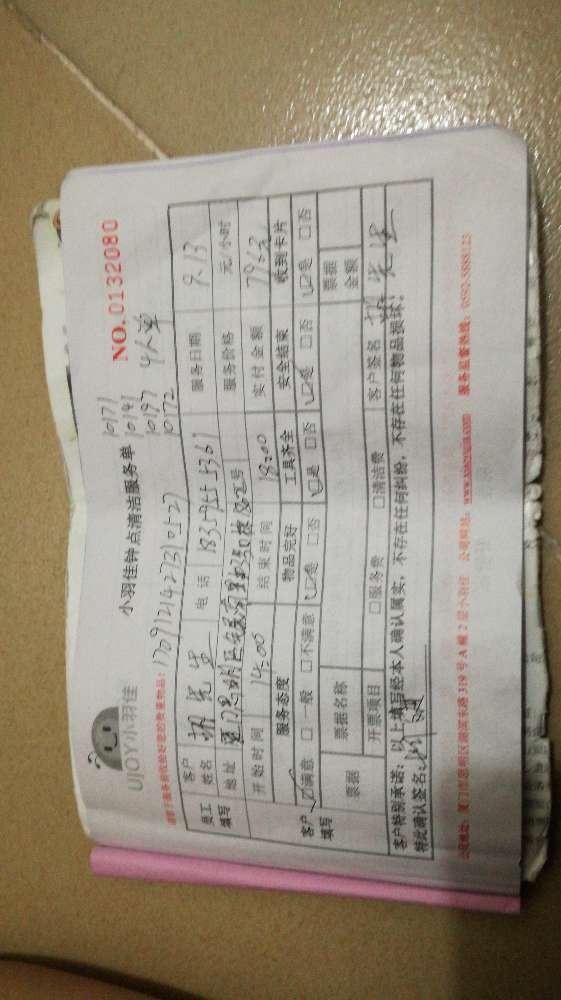 UJOY小羽佳
小羽佳钟点清洁服务单
NO.0132080
10171
10141
10197 4人单
10172
客户姓名 胡先生 电话 服务日期 9.13
员工填写 地址 服务价格 元/小时
开始时间 14:00 结束时间 18:00 实付金额
服务态度 物品完好 工具齐全 安全结束 收到卡片
客户填写 ☑满意 □一般 □不满意 ☑是 □否 ☑是 □否 ☑是 □否 ☑是 □否
票据 票据名称 票据金额
开票项目 □服务费 □清洁费 客户签名 胡先生
客户特别承诺：以上填写经本人确认属实，不存在任何纠纷，不存在任何物品损坏，
特此确认签名：
公司地址：厦门市思明区湖滨东路319号A幢2层小羽佳 公司网站：www.xiaoyujia.com 服务监督热线：0592-5888123